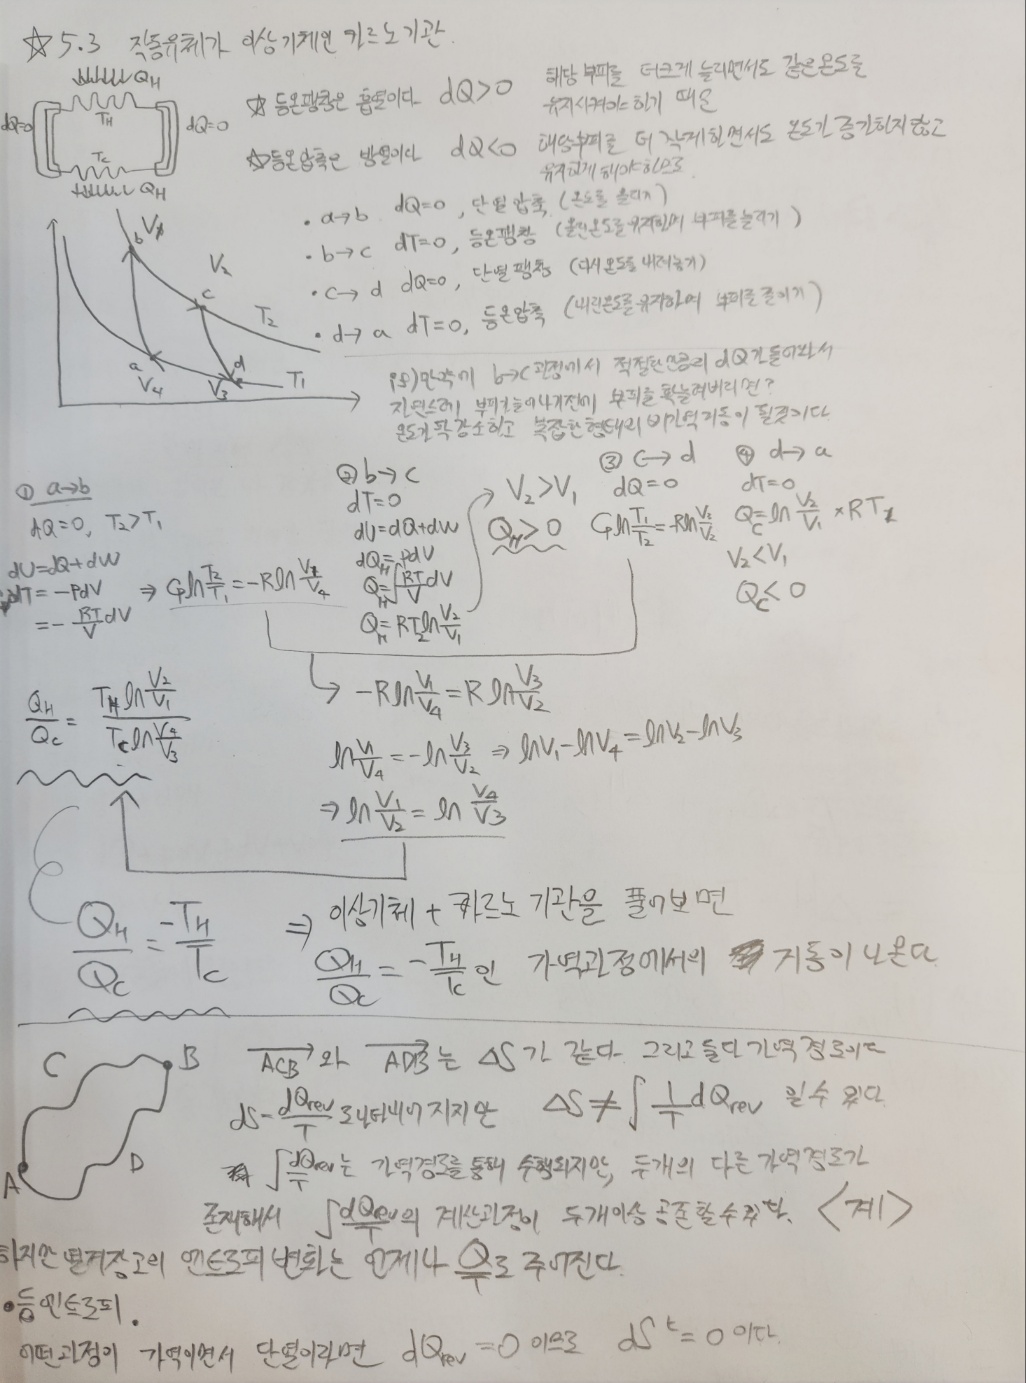 ☆5.3 작동유체가 이상기체인 카르노기관.
Q_H
dQ=0 T_H dQ=0
T_C
Q_H
☆ 등온팽창은 흡열이다 dQ>0 해당 부피를 더크게 늘리면서도 같은온도를
유지시켜야 하기 때문
☆등온압축은 방열이다 dQ<0 해당부피를 더 작게하면서도 온도가 증가하지 않고
유지하게 해야하므로
• a→b dQ=0, 단열압축 (온도를 올리기)
• b→c dT=0, 등온팽창 (올린온도를유지하며 부피를늘리기)
• c→d dQ=0, 단열팽창 (다시온도를 내려놓기)
• d→a dT=0, 등온압축 (내린온도를유지하여 부피를줄이기)
b V_1
V_2
c
T_2
a d
V_4 V_3 T_1
if) 만약에 b→c과정에서 적절한만큼의 dQ가 들어와서
부피를 확늘려버리면?
온도가 팍감소하고 복잡한형태의 비가역거동이 될것이다
① a→b
dQ=0, T_2>T_1
dU=dQ+dW
dT=-PdV ⇒ C_V ln T_2/T_1 = -R ln V_1/V_4
=- RT/V dV
② b→c
dT=0
dU=dQ+dW
dQ_H=PdV
Q_H=∫RT/V dV
Q_H=RT_2 ln V_2/V_1
V_2>V_1
Q_H>0
③ c→d
dQ=0
C_V ln T_1/T_2 = -R ln V_3/V_2
④ d→a
dT=0
Q_C=ln V_2/V_1 × RT_1
V_2<V_1
Q_C<0
-R ln V_1/V_4 = R ln V_3/V_2
ln V_1/V_4 = -ln V_3/V_2 ⇒ lnV_1-lnV_4=lnV_2-lnV_3
⇒ ln V_1/V_2 = ln V_4/V_3
Q_H/Q_C = T_H ln V_2/V_1 / T_C ln V_4/V_3
Q_H/Q_C = -T_H/T_C ⇒ 이상기체 + 카르노 기관을 풀어보면
Q_H/Q_C = -T_H/T_C 인 가역과정에서의 거동이 나온다
C B
A D
ACB와 ADB는 ΔS가 같다. 그리고 둘다 가역경로이다
dS=dQrev/T 로 나타내어지지만 ΔS≠∫1/T dQrev 일수 있다
∫dQrev/T는 가역경로를 통해 수행되지만, 두개의 다른 가역경로가
존재해서 ∫dQrev/T의 계산과정이 두개이상 공존할수있다. <계>
하지만 열저장고의 엔트로피 변화는 언제나 Q/T로 주어진다.
•등엔트로피.
어떤과정이 가역이면서 단열이라면 dQrev=0 이므로 dS^t=0 이다.